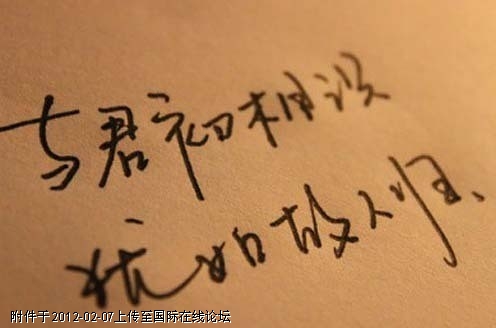 与君初相识
犹如故人归、
附件于2012-02-07上传至国际在线论坛